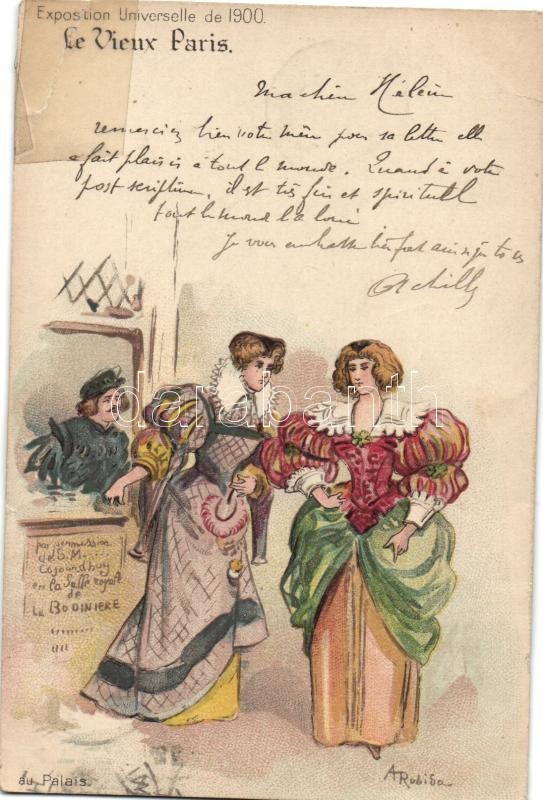 Exposition Universelle de 1900.
Le Vieux Paris.
Ma chère Hélène
remerciez bien votre mère pour sa lettre elle
a fait plaisir à tout le monde. Quand à votre
post scriptum, il est très fin et spirituel
tout le monde l'a
Je vous embrasse bien fort ainsi que
Achille
darabanth
par permission
de S.M. ....
Cejourdhuy
en la Salle royale
de
La BODINIERE
au Palais.
A Robida